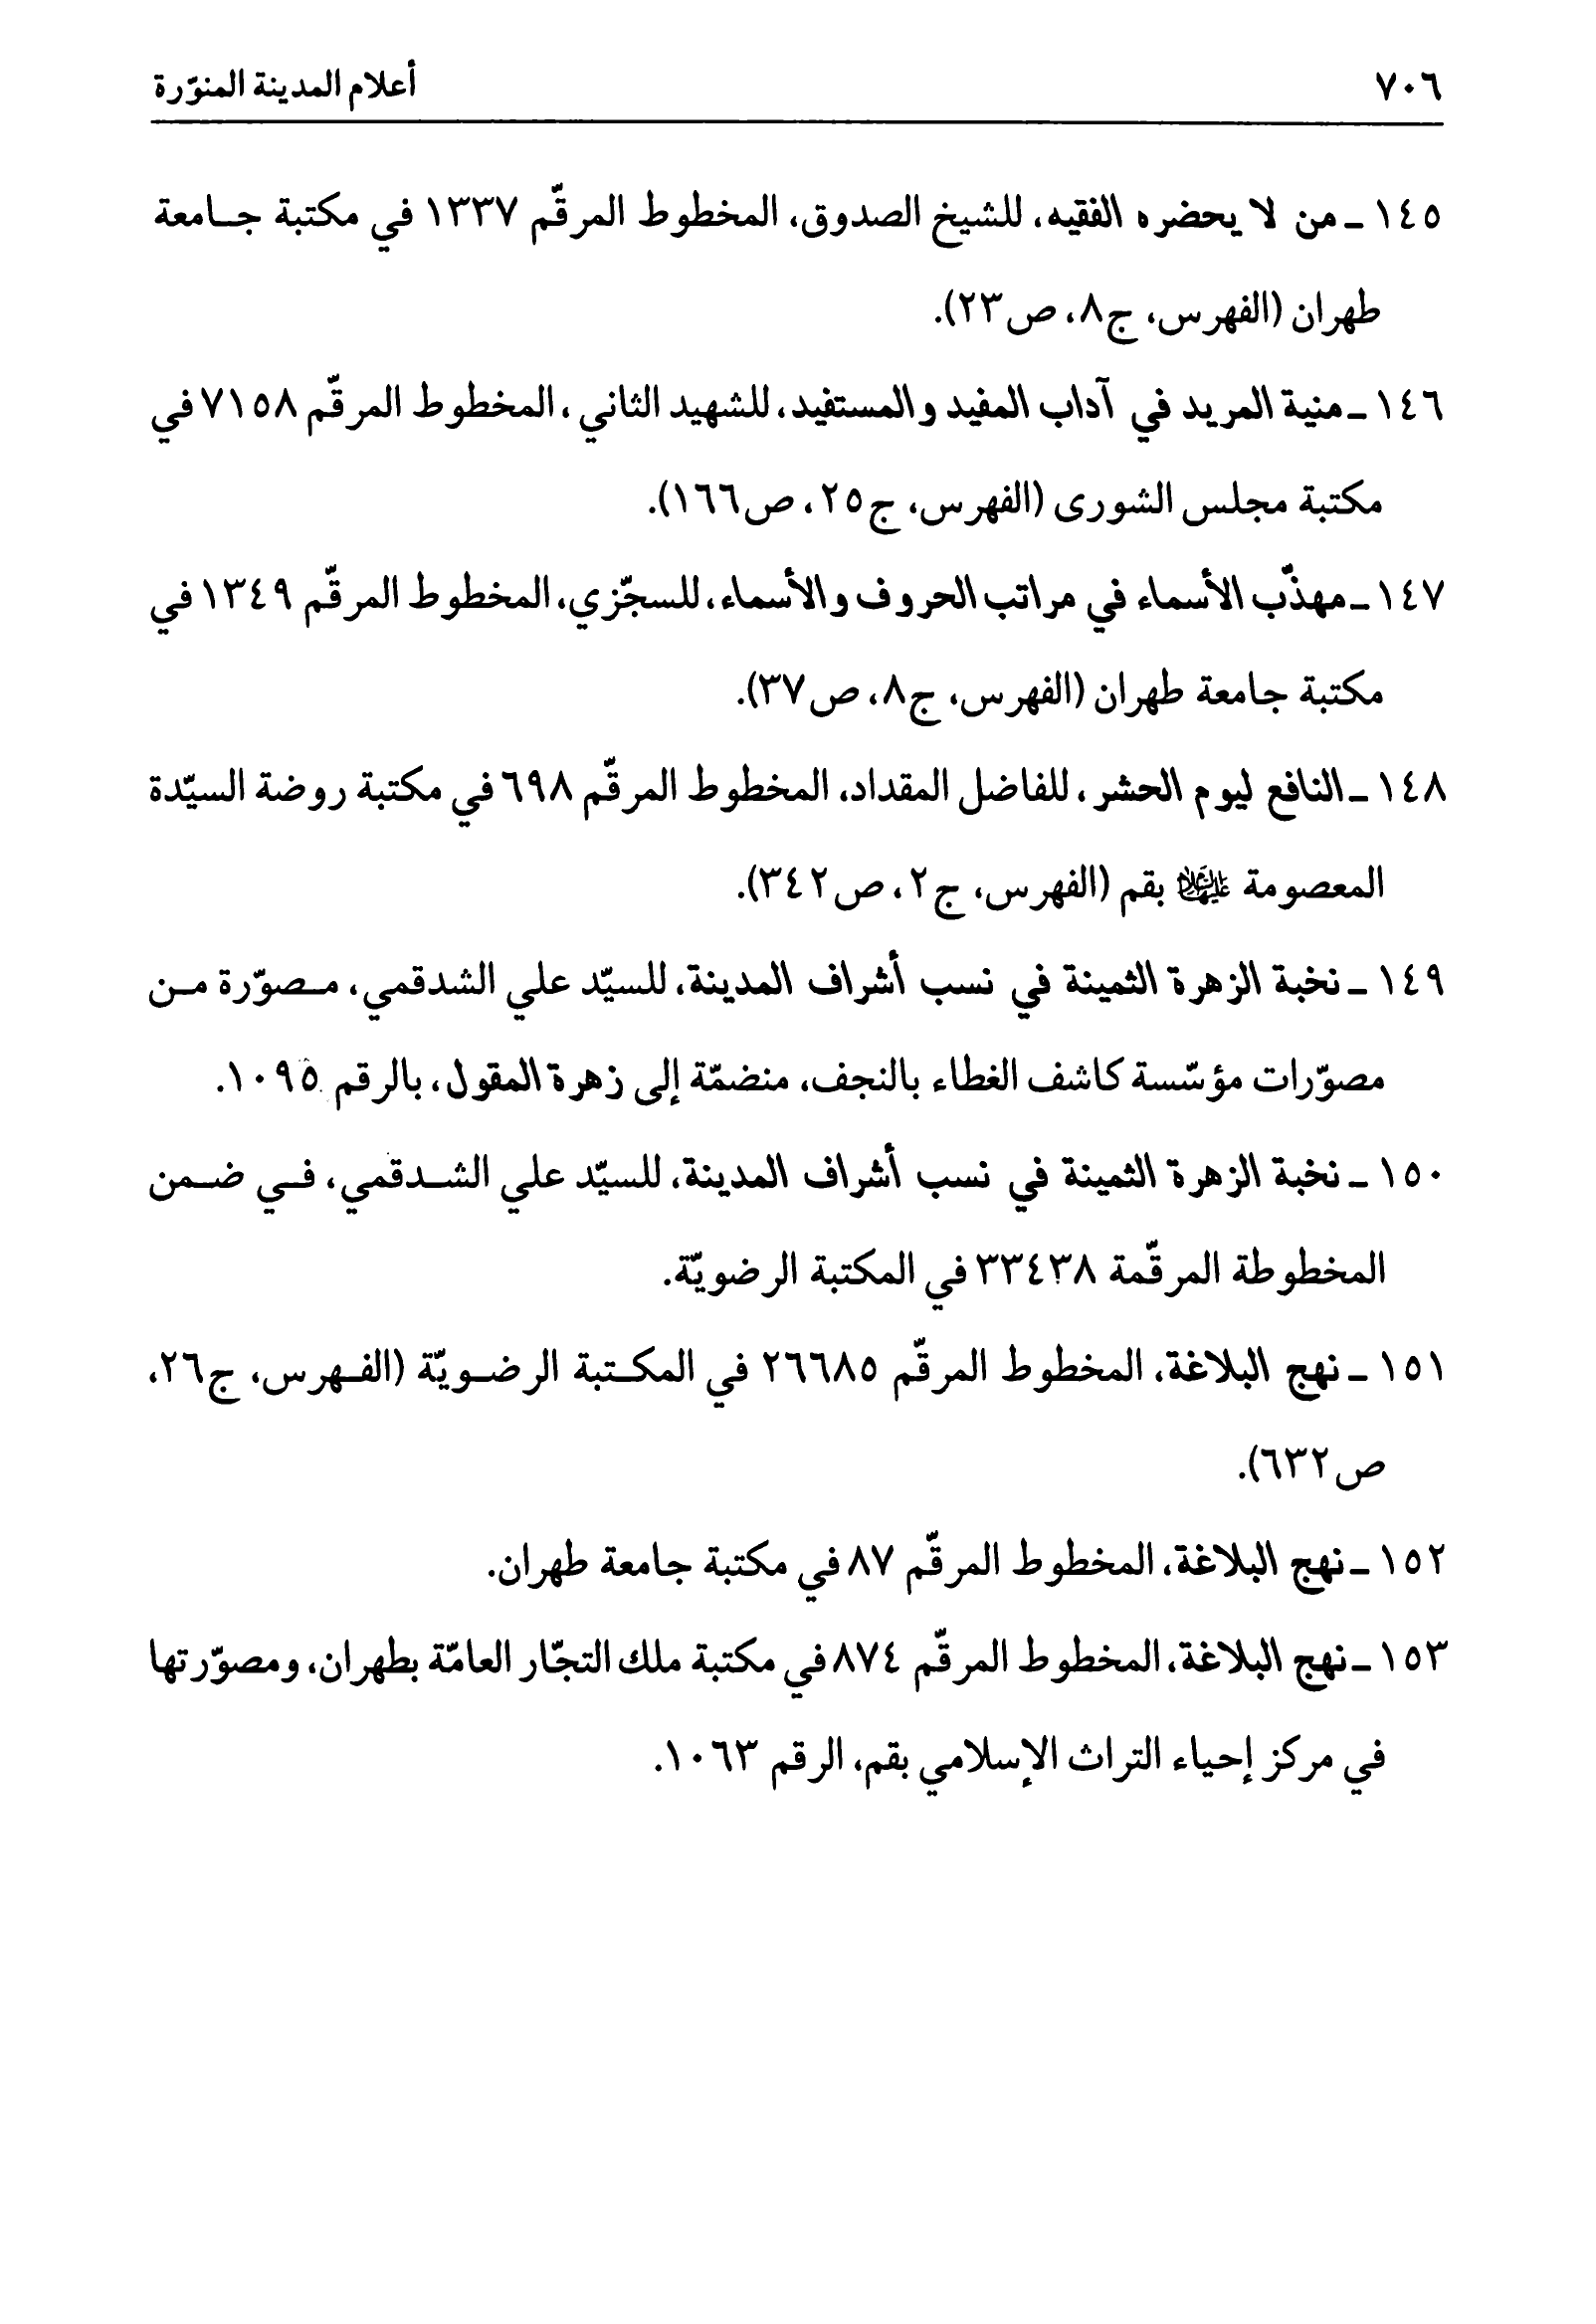 ٧٠٦ أعلام المدينة المنوّرة
١٤٥ ـ من لا يحضره الفقيه، للشيخ الصدوق، المخطوط المرقّم ١٣٣٧ في مكتبة جـامعة
طهران (الفهرس، ج٨، ص٢٣).
١٤٦ ـ منية المريد في آداب المفيد والمستفيد، للشهيد الثاني، المخطوط المرقّم ٧١٥٨ في
مكتبة مجلس الشورى (الفهرس، ج٢٥، ص١٦٦).
١٤٧ ـ مهذّب الأسماء في مراتب الحروف والأسماء، للسجّزي، المخطوط المرقّم ١٣٤٩ في
مكتبة جامعة طهران (الفهرس، ج٨، ص٣٧).
١٤٨ ـ النافع ليوم الحشر، للفاضل المقداد، المخطوط المرقّم ٦٩٨ في مكتبة روضة السيّدة
المعصومة عليها السلام بقم (الفهرس، ج٢، ص٣٤٢).
١٤٩ ـ نخبة الزهرة الثمينة في نسب أشراف المدينة، للسيّد علي الشدقمي، مـصوّرة مـن
مصوّرات مؤسّسة كاشف الغطاء بالنجف، منضمّة إلى زهرة المقول، بالرقم ١٠٩٥.
١٥٠ ـ نخبة الزهرة الثمينة في نسب أشراف المدينة، للسيّد علي الشـدقمي، فـي ضـمن
المخطوطة المرقّمة ٣٣٤٣٨ في المكتبة الرضويّة.
١٥١ ـ نهج البلاغة، المخطوط المرقّم ٢٦٦٨٥ في المكـتبة الرضـويّة (الفـهرس، ج٢٦،
ص٦٣٢).
١٥٢ ـ نهج البلاغة، المخطوط المرقّم ٨٧ في مكتبة جامعة طهران.
١٥٣ ـ نهج البلاغة، المخطوط المرقّم ٨٧٤ في مكتبة ملك التجّار العامّة بطهران، ومصوّرتها
في مركز إحياء التراث الإسلامي بقم، الرقم ١٠٦٣.